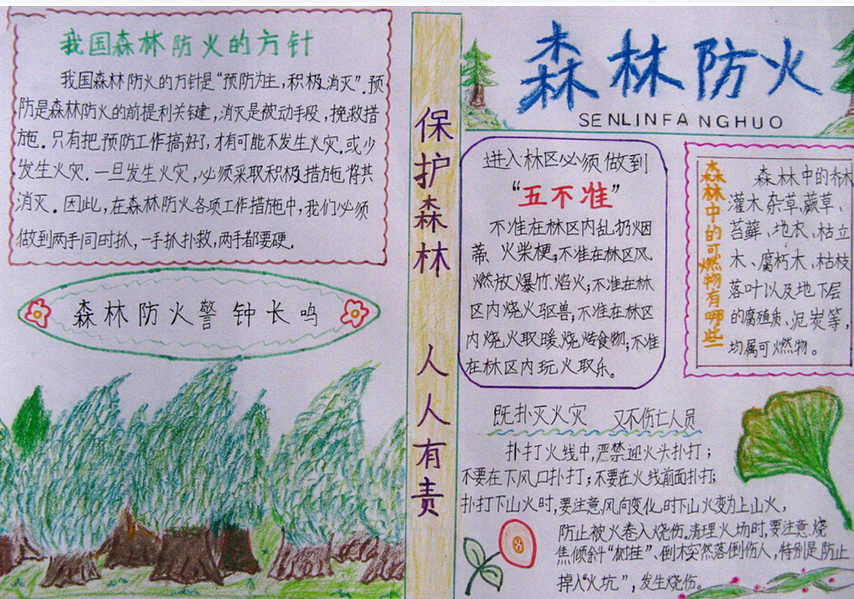 我国森林防火的方针
我国森林防火的方针是“预防为主,积极消灭”.预
防是森林防火的前提利关键,消灭是被动手段,挽救措
施.只有把预防工作搞好了,才有可能不发生火灾.或少
发生火灾.一旦发生火灾,必须采取积极措施将其
消灭.因此,在森林防火各项工作措施中,我们必须
做到两手同时抓,一手抓扑救,两手都要硬.
森林防火警钟长鸣
保护森林 人人有责
森林防火
SENLINFANGHUO
进入林区必须做到
“五不准”
不准在林区内乱扔烟
蒂、火柴梗;不准在林区风
燃放爆竹、焰火;不准在林
区内烧火驱兽;不准在林区
内烧火取暖、烧烤食物;不准
在林区内玩火取乐。
森林中的可燃物有哪些
森林中的林
灌木杂草、蕨草、
苔藓、地衣、枯立
木、腐朽木、枯枝
落叶以及地下层
的腐殖质、泥炭等,
均属可燃物。
既扑灭火灾 又不伤亡人员
扑打火线中,严禁迎火头扑打;
不要在下风口扑打;不要在火线前面扑打;
扑打下山火时,要注意风向变化,时下山火变为上山火,
防止被火卷入烧伤.清理火场时,要注意烧
焦倾斜“树挂”、倒木突然落倒伤人,特别是防止
掉入“火坑”,发生烧伤。